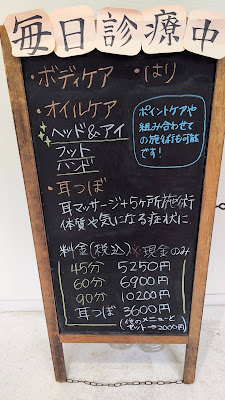 毎日診療中
・ボディケア ・はり
・オイルケア
ヘッド&アイ
フット
ハンド
ポイントケアや
組み合わせて
の施術も可能
です!
・耳つぼ
耳マッサージ+5ヶ所施術
体質や気になる症状に
料金(税込)※現金のみ
45分 5250円
60分 6900円
90分 10200円
耳つぼ 3600円
(他のメニューと
セット→3000円)